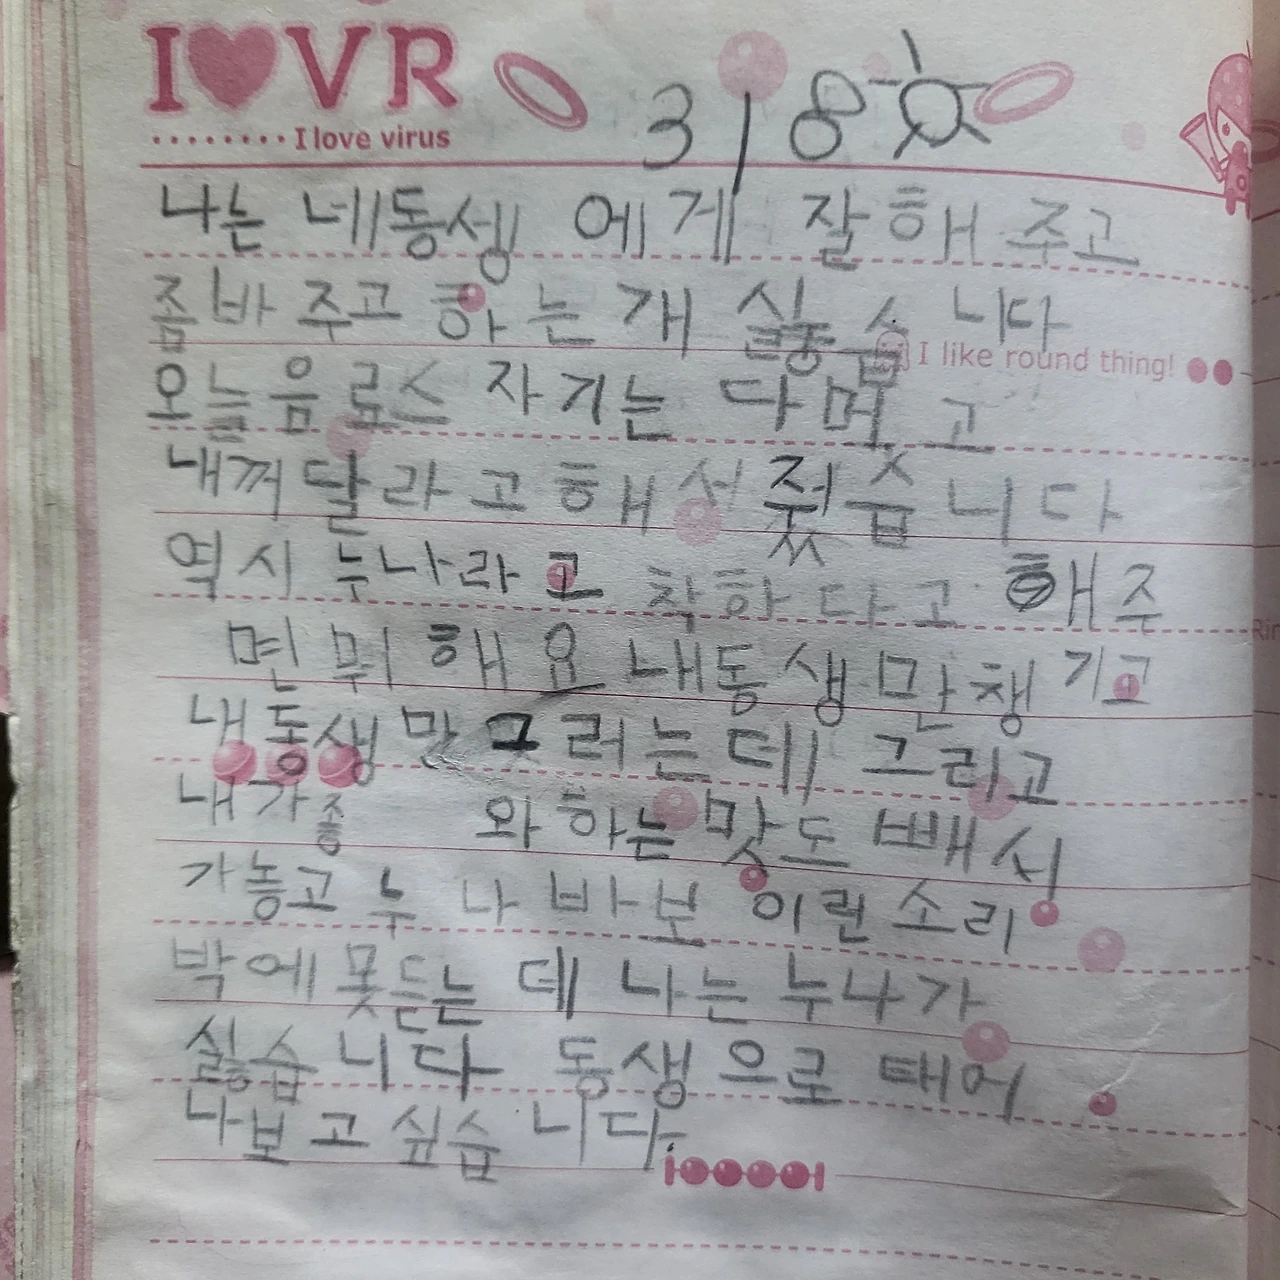 I ♥ VR
I love virus
3 | 8
나는 네동생 에게 잘해주고
좀바 주고 하는개 실습니다
I like round thing!
오늘음료스 자기는 다먹고
내꺼달라고해서 줬습니다
역시 누나라고 착하다고 해주
면 뭐해요 내동생만챙기고
내동생만 그러는데 그리고
내가좋 와하는 맛도 빼서
가놓고 누나바보 이란소리
박에못듣는데 나는누나가
싫습니다 동생으로 태어
나보고싶습니다.